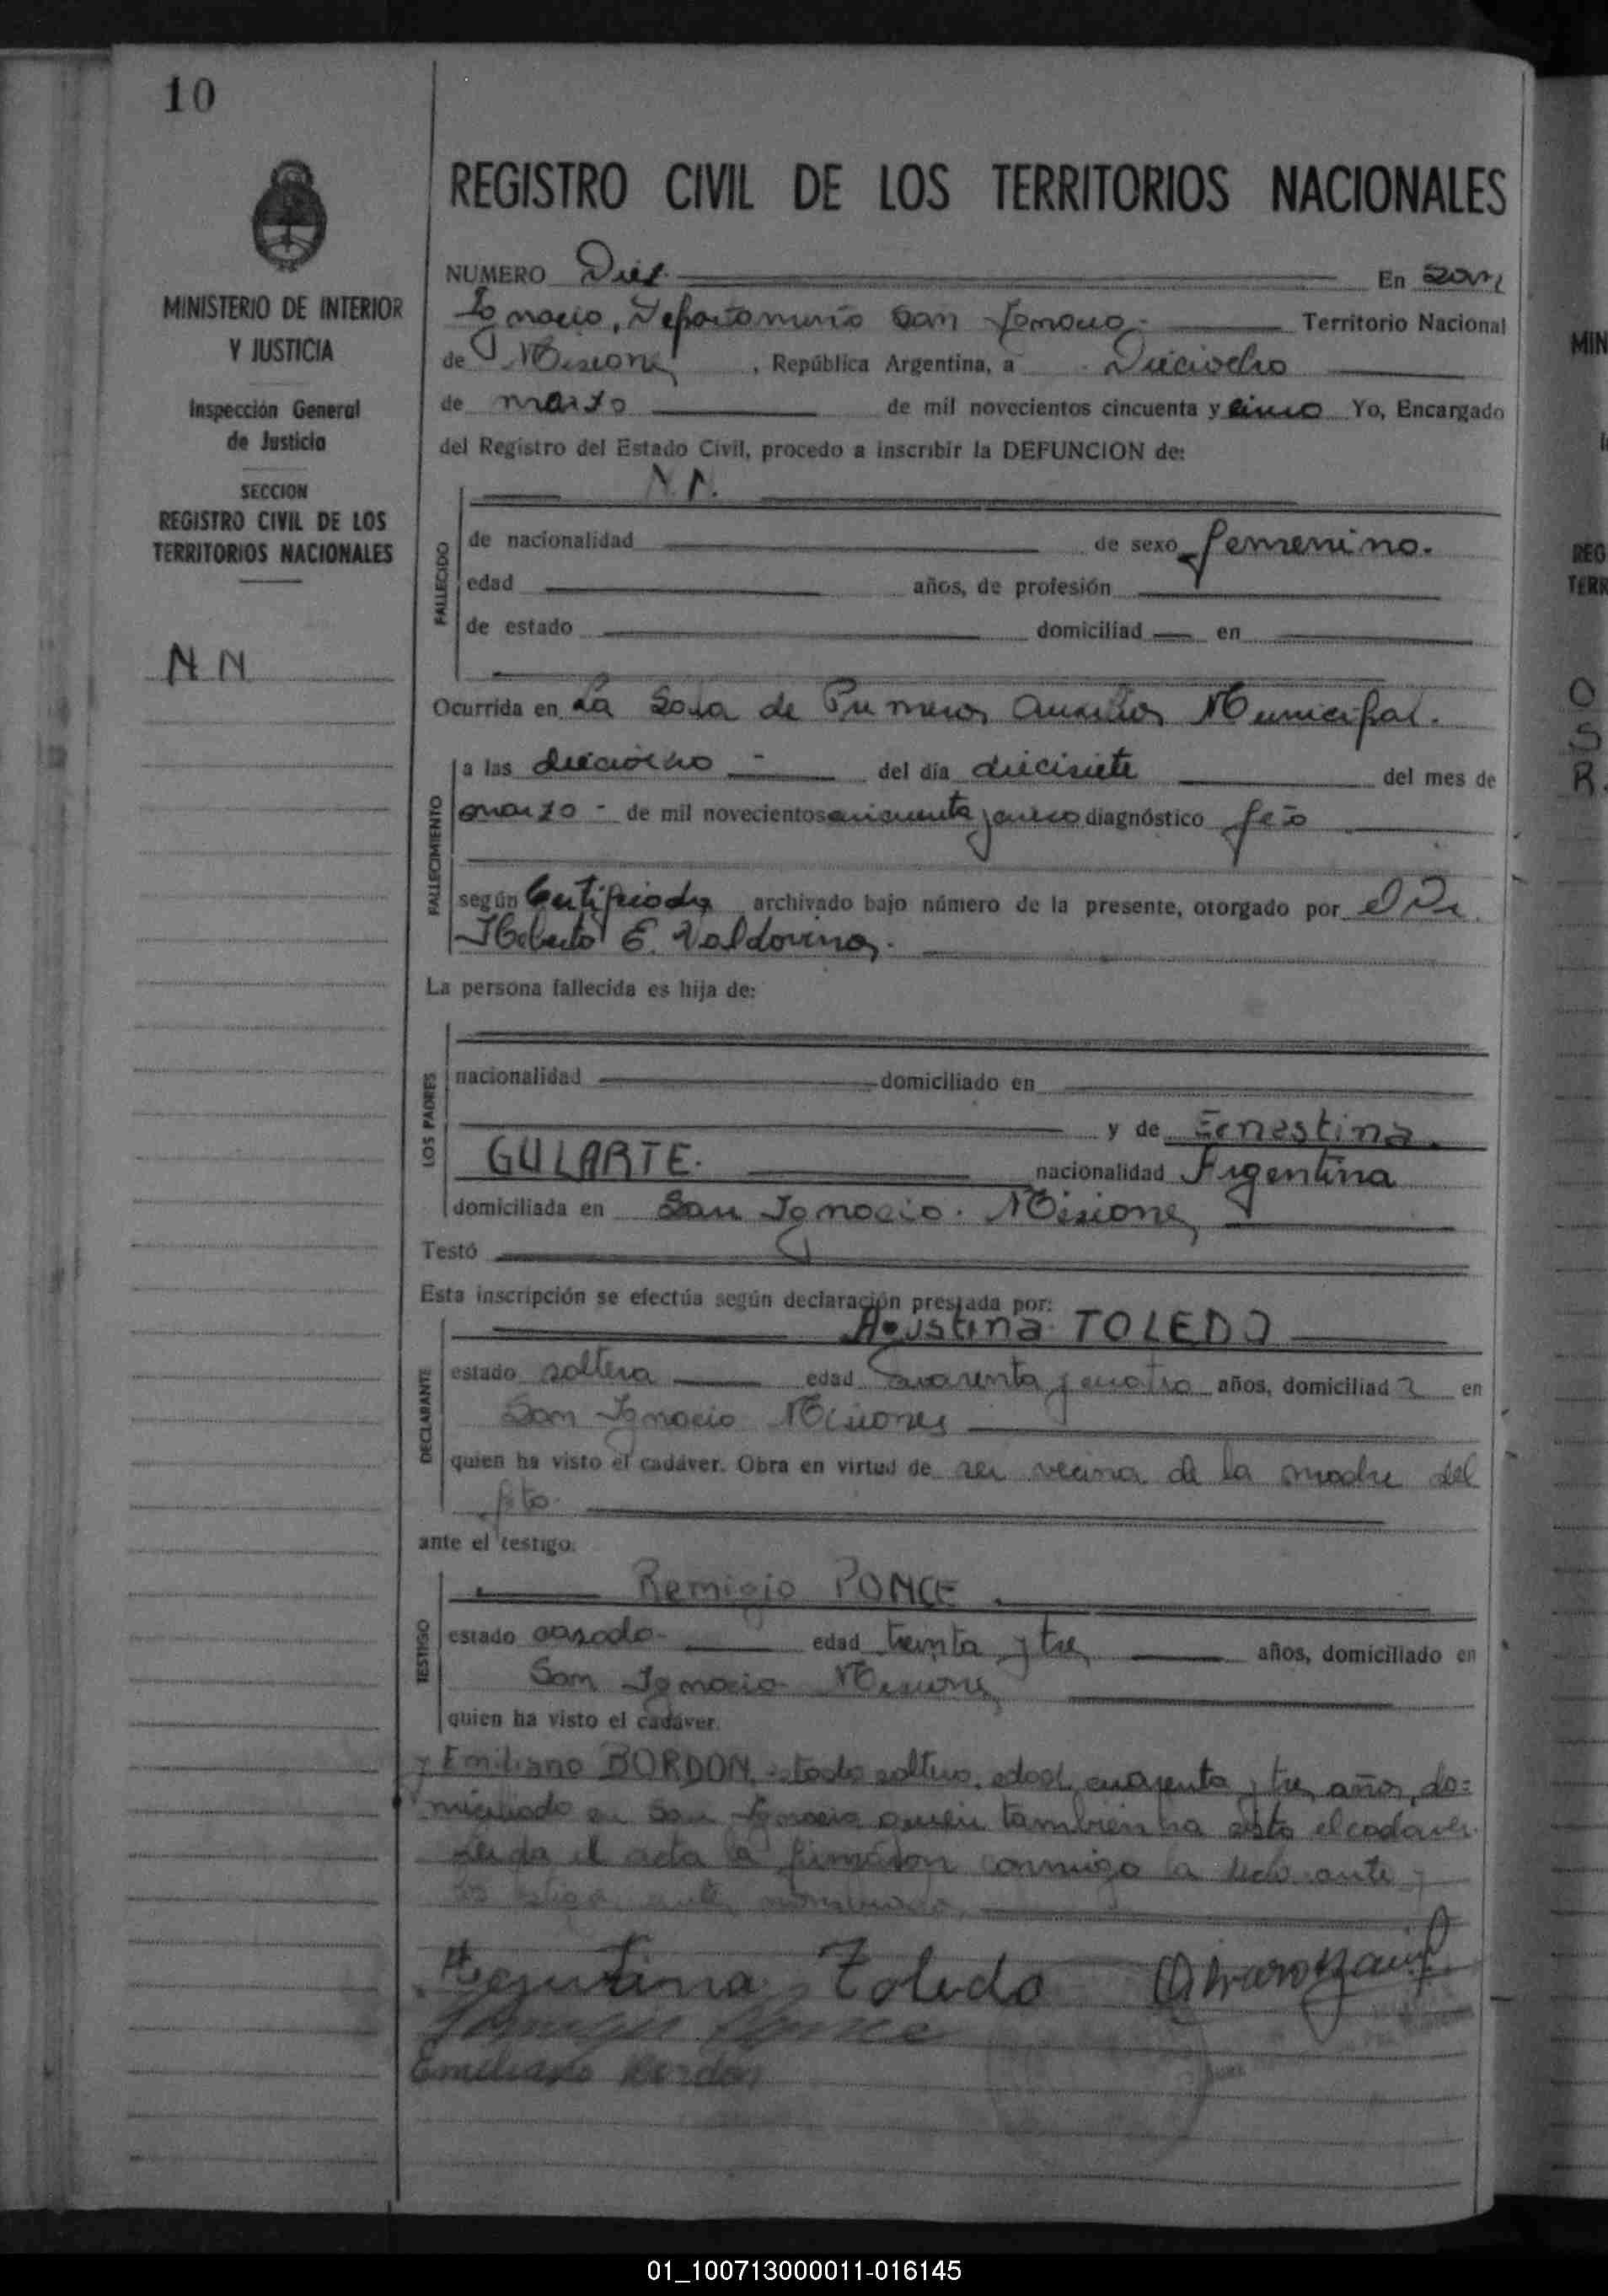 10
MINISTERIO DE INTERIOR
Y JUSTICIA
Inspección General
de Justicia
SECCION
REGISTRO CIVIL DE LOS
TERRITORIOS NACIONALES
N N
REGISTRO CIVIL DE LOS TERRITORIOS NACIONALES
NUMERO Diez En San
Ignacio, Departamento San Ignacio. Territorio Nacional
de Misiones, República Argentina, a Dieciocho
de marzo de mil novecientos cincuenta y cinco Yo, Encargado
del Registro del Estado Civil, procedo a inscribir la DEFUNCION de:
N.N.
FALLECIDO
de nacionalidad de sexo femenino.
edad años, de profesión
de estado domiciliad en
Ocurrida en La Sala de Primeros Auxilios Municipal.
FALLECIMIENTO
a las dieciocho - del día diecisiete del mes de
marzo - de mil novecientos cincuenta y cinco diagnóstico feto
según Certificado archivado bajo número de la presente, otorgado por el Dr.
E. Valdovinos.
La persona fallecida es hija de:
LOS PADRES
nacionalidad domiciliado en
y de Ernestina
GULARTE. nacionalidad Argentina
domiciliada en San Ignacio. Misiones
Testó
Esta inscripción se efectúa según declaración prestada por:
Agustina TOLEDO
DECLARANTE
estado soltera edad cuarenta y cuatro años, domiciliad a en
San Ignacio Misiones
quien ha visto el cadáver. Obra en virtud de ser vecina de la madre del
feto.
ante el testigo:
Remigio PONCE
TESTIGO
estado casado- edad treinta y tres años, domiciliado en
San Ignacio Misiones
quien ha visto el cadáver.
y Emiliano BORDON, estado soltero, edad cuarenta y tres años, do=
miciliado en San Ignacio quien también ha visto el cadaver.
Leida el acta la firmaron conmigo la declarante y
los testigos ante nombrados.
Agustina Toledo
Remigio Ponce
Emiliano Bordon
MIN
REG
TERR
O
S
R.
01_100713000011-016145